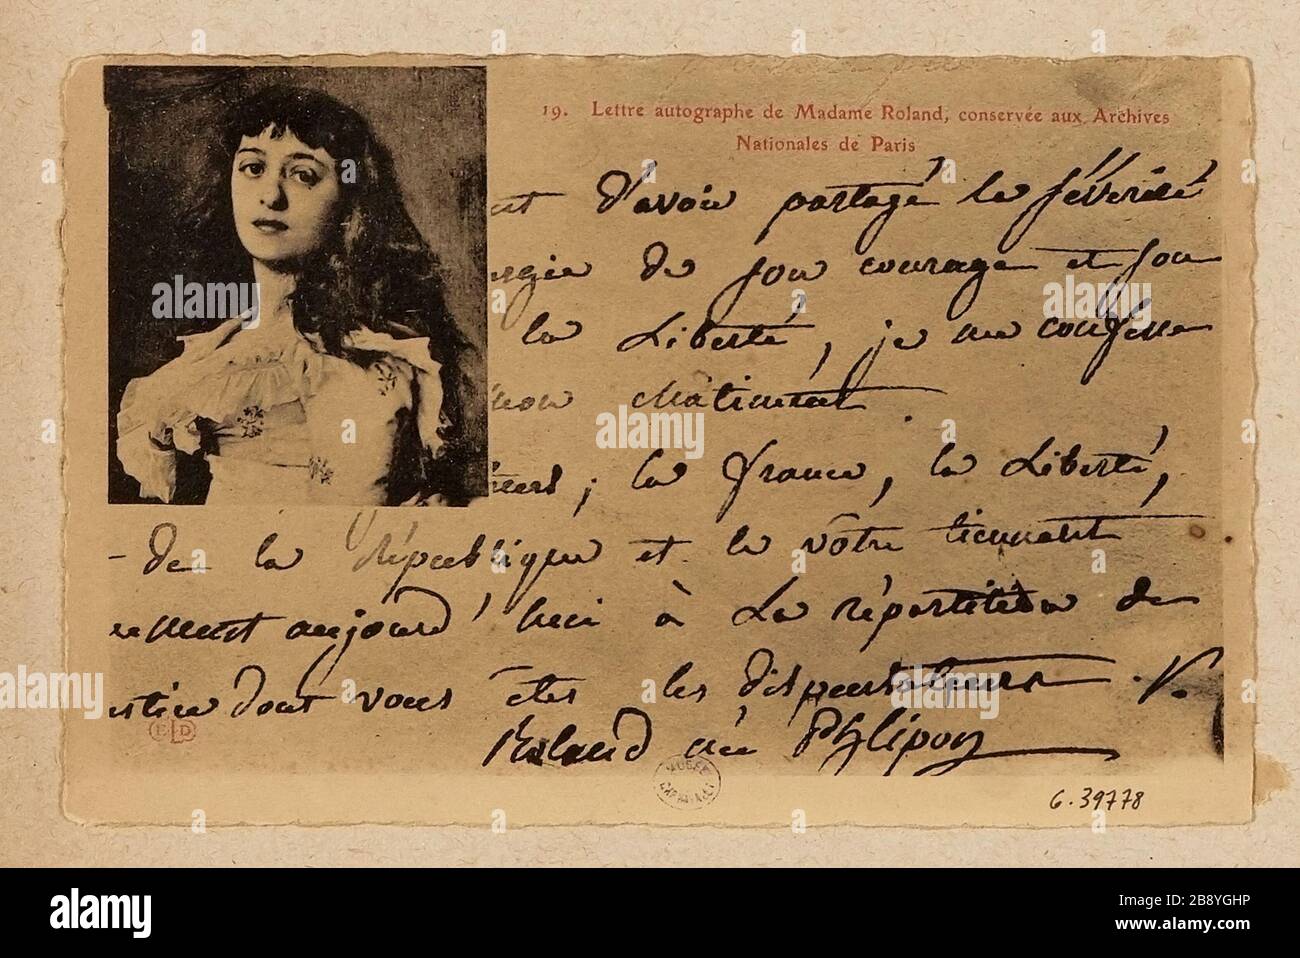 19. Lettre autographe de Madame Roland, conservée aux Archives
Nationales de Paris
d'avoir partagé la sévérité
de son courage et son
la Liberté, je me confesse
mon châtiment.
la france, la Liberté,
- de la république et la vôtre tiennent
aujourd'hui à La répartition de
dont vous êtes les dispensateurs.
Roland née Phlipon
ELD
MUSÉE CARNAVALET
G.39778
alamy
Image ID: 2B8YGHP
www.alamy.com